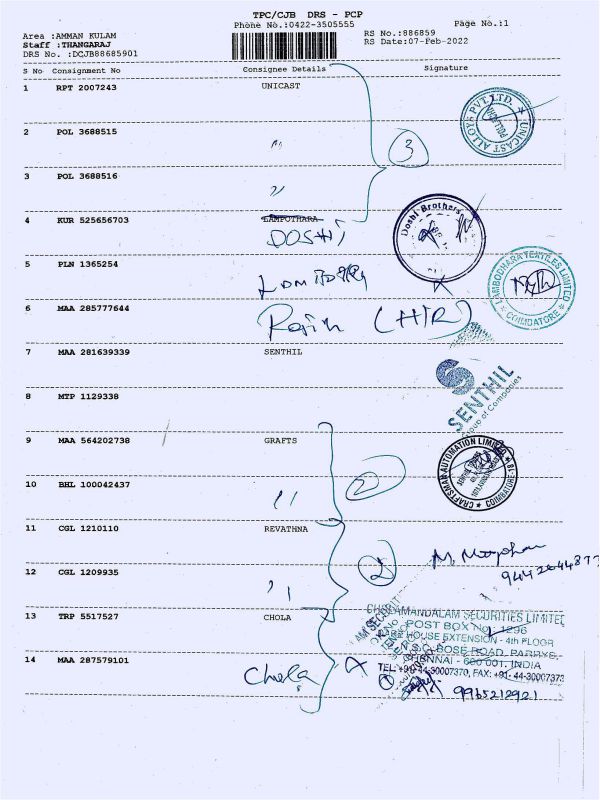 TPC/CJB DRS - PCP
Phone No.:0422-3505555
Page No.:1
Area :AMMAN KULAM
RS No.:886859
Staff :THANGARAJ
RS Date:07-Feb-2022
DRS No. :DCJB88685901
S No Consignment No Consignee Details Signature
1 RPT 2007243 UNICAST
UNICAST ALLOYS PVT.LTD.
2 POL 3688515 〃
3
3 POL 3688516 〃
4 KUR 525656703 LAMPOTHARA
DOSHI
Doshi Brothers
5 PLN 1365254
LAMBODHARA TEXTILES LIMITED
COIMBATORE
6 MAA 285777644
(HR)
7 MAA 281639339 SENTHIL
SENTHIL
Group of Companies
8 MTP 1129338
9 MAA 564202738 GRAFTS
CRAFTSMAN AUTOMATION LIMITED
COIMBATORE
10 BHL 100042437 〃
2
11 CGL 1210110 REVATHNA
2
12 CGL 1209935 〃
13 TRP 5517527 CHOLA
CHOLAMANDALAM SECURITIES LIMITED
POST BOX No. 1296
DARE HOUSE EXTENSION - 4th FLOOR
N.S.C. BOSE ROAD, PARRYS,
14 MAA 287579101
CHENNAI - 600 001. INDIA
TEL: +91-44-30007370, FAX: +91-44-30007373
Chola
9965212921